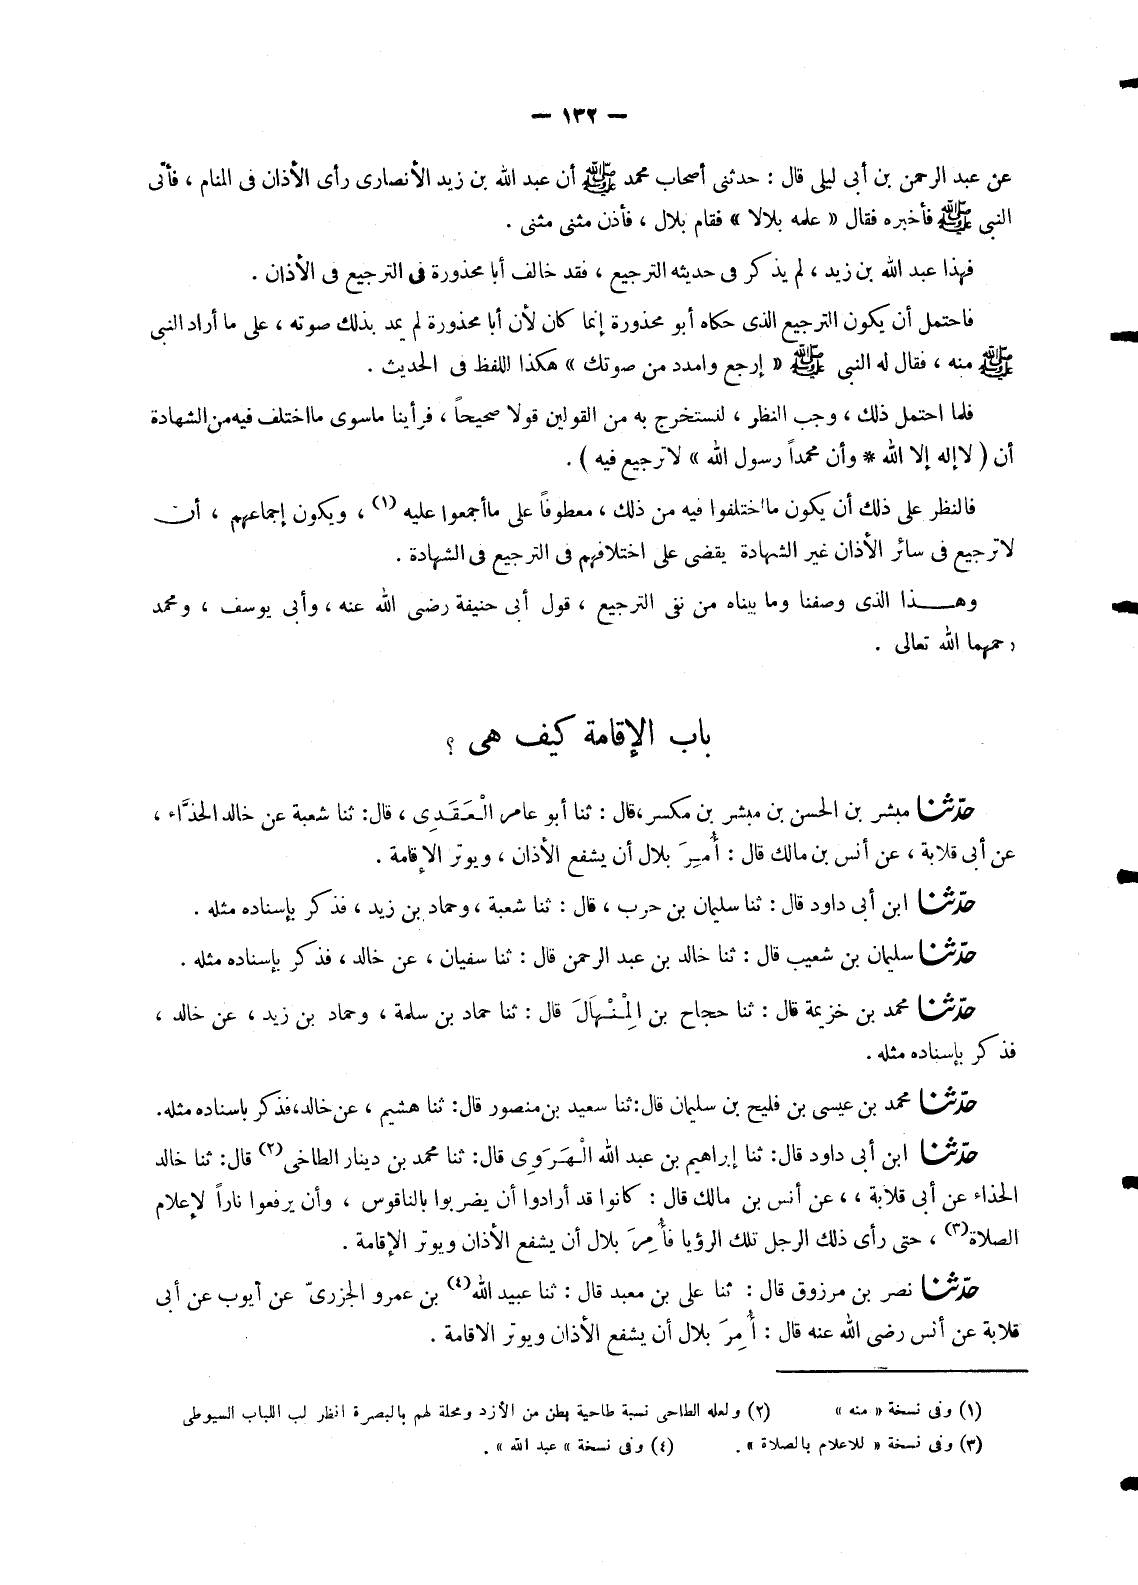 — ١٣٢ —
عن عبد الرحمن بن أبى ليلى قال : حدثنى أصحاب محمد ﷺ أن عبد الله بن زيد الأنصارى رأى الأذان فى المنام ، فأتى
النبى ﷺ فأخبره فقال « علمه بلالا » فقام بلال ، فأذن مثنى مثنى .
فهذا عبد الله بن زيد ، لم يذكر فى حديثه الترجيع ، فقد خالف أبا محذورة فى الترجيع فى الأذان .
فاحتمل أن يكون الترجيع الذى حكاه أبو محذورة إنما كان لأن أبا محذورة لم يمد بذلك صوته ، على ما أراد النبى
ﷺ منه ، فقال له النبى ﷺ « إرجع وامدد من صوتك » هكذا اللفظ فى الحديث .
فلما احتمل ذلك ، وجب النظر ، لنستخرج به من القولين قولا صحيحاً ، فرأينا ماسوى مااختلف فيه من الشهادة
أن ( لاإله إلا الله * وأن محمداً رسول الله » لاترجيع فيه ) .
فالنظر على ذلك أن يكون مااختلفوا فيه من ذلك ، معطوفاً على ماأجمعوا عليه (١) ، ويكون إجماعهم ، أن
لاترجيع فى سائر الأذان غير الشهادة يقضى على اختلافهم فى الترجيع فى الشهادة .
وهـــذا الذى وصفنا وما بيناه من نفى الترجيع ، قول أبى حنيفة رضى الله عنه ، وأبى يوسف ، ومحمد
رحمهما الله تعالى .
باب الإقامة كيف هى ؟
حدّثنا مبشر بن الحسن بن مبشر بن مكسر،قال : ثنا أبو عامر الْعَقَدِى ، قال: ثنا شعبة عن خالد الحذَّاء ،
عن أبى قلابة ، عن أنس بن مالك قال : أُمِرَ بلال أن يشفع الأذان ، ويوتر الإقامة .
حدّثنا ابن أبى داود قال : ثنا سليمان بن حرب ، قال : ثنا شعبة ، وحماد بن زيد ، فذكر بإسناده مثله .
حدّثنا سليمان بن شعيب قال : ثنا خالد بن عبد الرحمن قال : ثنا سفيان ، عن خالد ، فذكر بإسناده مثله .
حدّثنا محمد بن خزيمة قال : ثنا حجاج بن الْمِنْهَالَ قال : ثنا حماد بن سلمة ، وحماد بن زيد ، عن خالد ،
فذكر بإسناده مثله .
حدّثنا محمد بن عيسى بن فليح بن سليمان قال:ثنا سعيد بن منصور قال: ثنا هشيم ، عن خالد،فذكر باسناده مثله.
حدّثنا ابن أبى داود قال: ثنا إبراهيم بن عبد الله الْهَرَوِى قال: ثنا محمد بن دينار الطاخى(٢) قال: ثنا خالد
الحذاء عن أبى قلابة ، ، عن أنس بن مالك قال : كانوا قد أرادوا أن يضربوا بالناقوس ، وأن يرفعوا ناراً لإعلام
الصلاة(٣) ، حتى رأى ذلك الرجل تلك الرؤيا فأُمِرَ بلال أن يشفع الأذان ويوتر الإقامة .
حدّثنا نصر بن مرزوق قال : ثنا على بن معبد قال : ثنا عبيد الله(٤) بن عمرو الجزرىّ عن أيوب عن أبى
قلابة عن أنس رضى الله عنه قال : أُمِرَ بلال أن يشفع الأذان ويوتر الاقامة .
(١) وفى نسخة « منه » (٢) ولعله الطاحى نسبة طاحية بطن من الأزد ومحلة لهم بالبصرة انظر لب اللباب السيوطى
(٣) وفى نسخة « للاعلام بالصلاة » . (٤) وفى نسخة » عبد الله » .